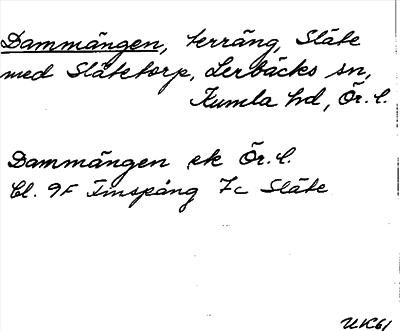 Dammängen, terräng, Släte
med Slätetorp, Lerbäcks sn,
Kumla hd, Ör. l.
Dammängen ek Ör. l.
Bl. 9F Finspång 7c Släte
UK61